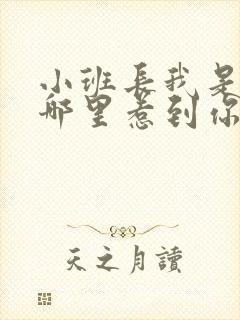 小班长我是
哪里惹到你
天之月讀